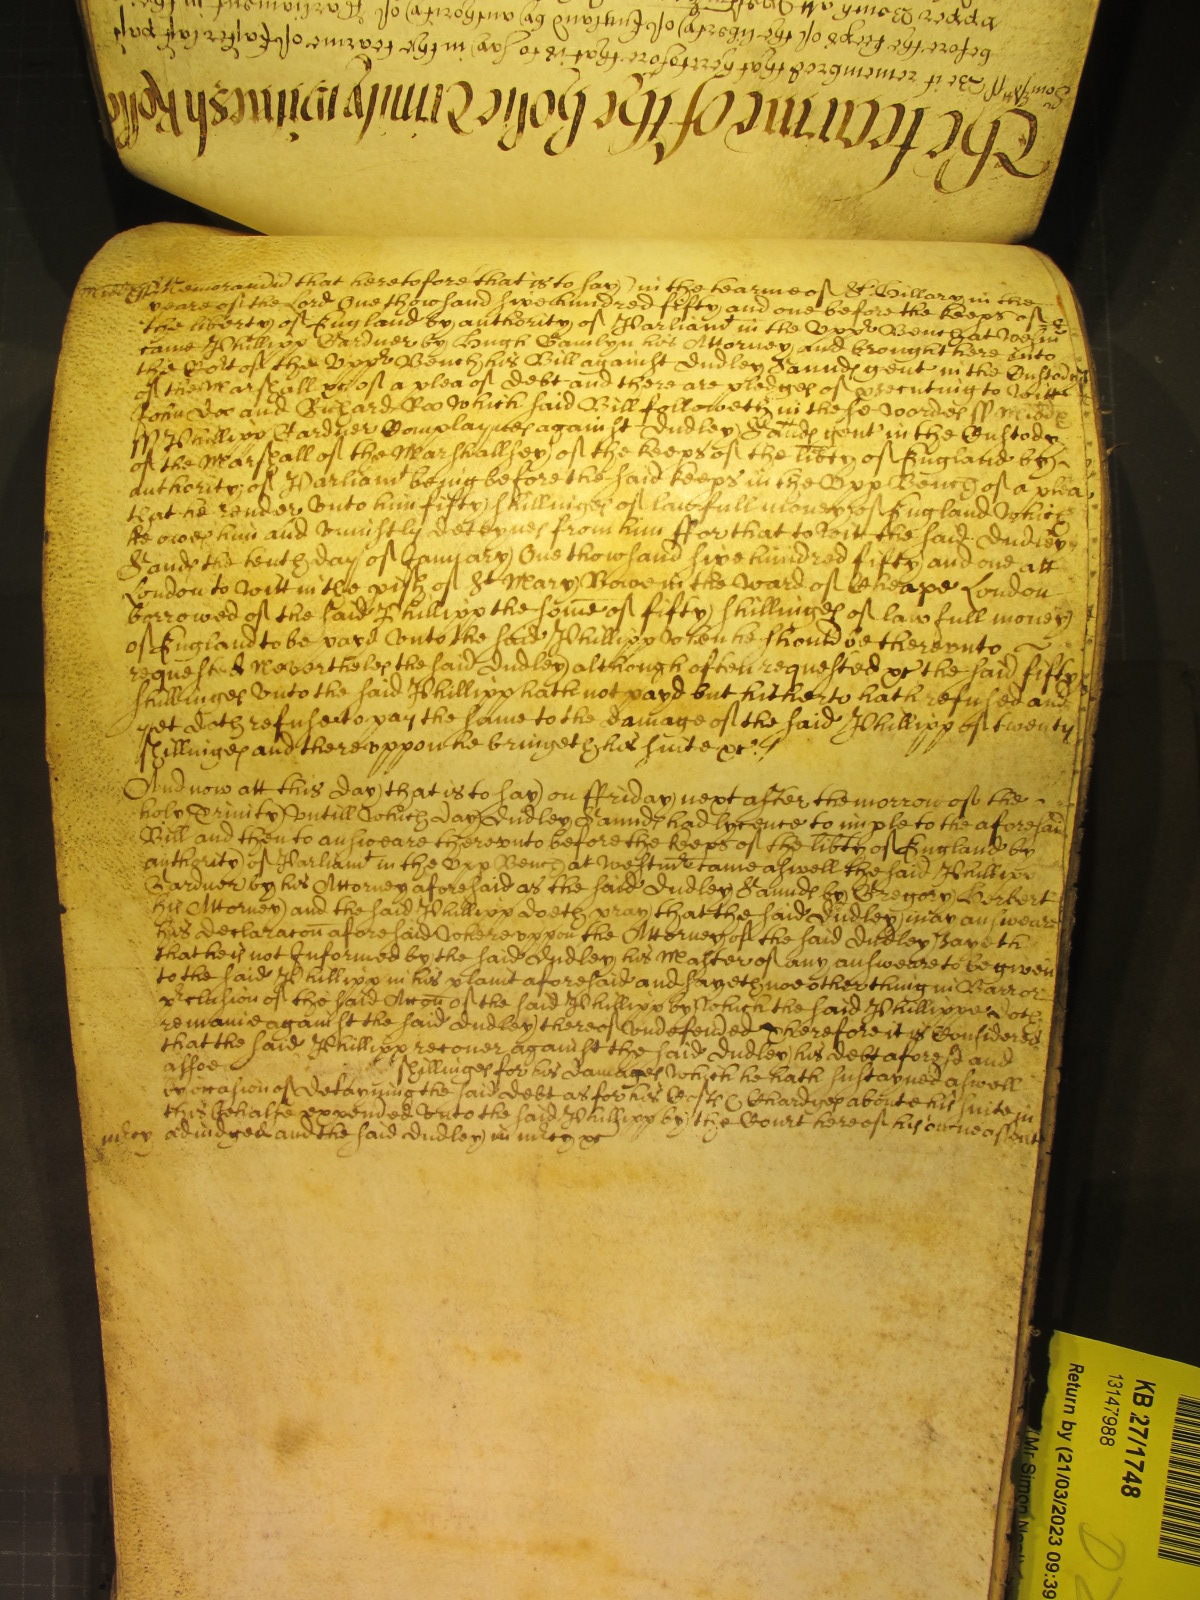 The tearme of the holie Trinity witnes h Rolle
Som'sst ss Be it remembred that heretofore that is to say in the tearme of Easter last past
before the keepers of the liberty of England by authority of Parliament in the
upper Bench att
Midd ss Memorandu that heretofore that is to say in the tearme of St Hillary in the
yeare of the Lord One thowsand six hundred fifty and one before the keeps of
the liberty of England by authority of Parliamt in the Uppr Bench at Westm
came Phillipp Gardner by Hugh Hamlyn his Attorney And brought here into
the Cort of the Uppr Bench his Bill against Dudley Sannds gent in the Custody
of the Marshall &c of a plea of debt and there are pledges of prsecuting to witt
John Doe and Richard Roe Which said Bill followeth in these wordes ss Midds
ss Phillipp Gardner Complaynes against Dudley Sannds gent in the Custody
of the Marshall of the Marshallsey of the keeps of the libty of England by
authority of Parliamt being before the said keeps in the Upp Bench of a plea
that he render unto him fifty shillinges of lawfull money of England Which
he owes him and uniustly deteynes from him ffor that to witt the said Dudley
Sands the tenth day of January One thowsand six hundred fifty and one att
London to witt in the pish of St Mary Bowe in the Ward of Cheape London
borrowed of the said Phillipp the some of fifty shillinges of lawfull money
of England to be payd unto the said Phillipp when he should be thereunto
requested Neverthelesse the said Dudley although often requested &c the said fifty
shillinges unto the said Phillipp hath not payd but hitherto hath refused and
yet doth refuse to pay the same to the damage of the said Phillipp of twenty
shillinges and thereuppon he bringeth his suite &c
And now att this day that is to say on ffriday next after the morrow of the
holy Trinity untill which day Dudley Sannds had lycence to imple to the aforesaid
Bill and then to answeare thereunto before the keeps of the libty of England by
authority of Parliamt in the Upp Bench at Westmr came aswell the said Phillipp
Gardner by his Attorney aforesaid as the said Dudley Sannds by Gregory Herbert
his Attorney and the said Phillipp doeth pray that the said Dudley may answeare
his declaracon aforesaid Whereuppon the Attorney of the said Dudley Sayeth
that he is not Informed by the said Dudley his Master of any answeare to be given
to the said Phillipp in his plaint aforesaid and sayeth noe other thing in Barr or
preclusion of the said Accon of the said Phillipp by which the said Phillippe doth
remaine against the said Dudley thereof undefended Therefore it is Considered
that the said Phillipp recover against the said Dudley his debt aforesd and
alsoe shillinges for his damages which he hath sustayned aswell
by occasion of detayning the said debt as for his Costs & Chardges about his suite in
this behalfe expended unto the said Phillipp by the Court here of his owne assent
mercy adiudged and the said Dudley in mercy &c
KB 27/1748
13147988
Return by (21/03/2023 09:39
Mr Simon